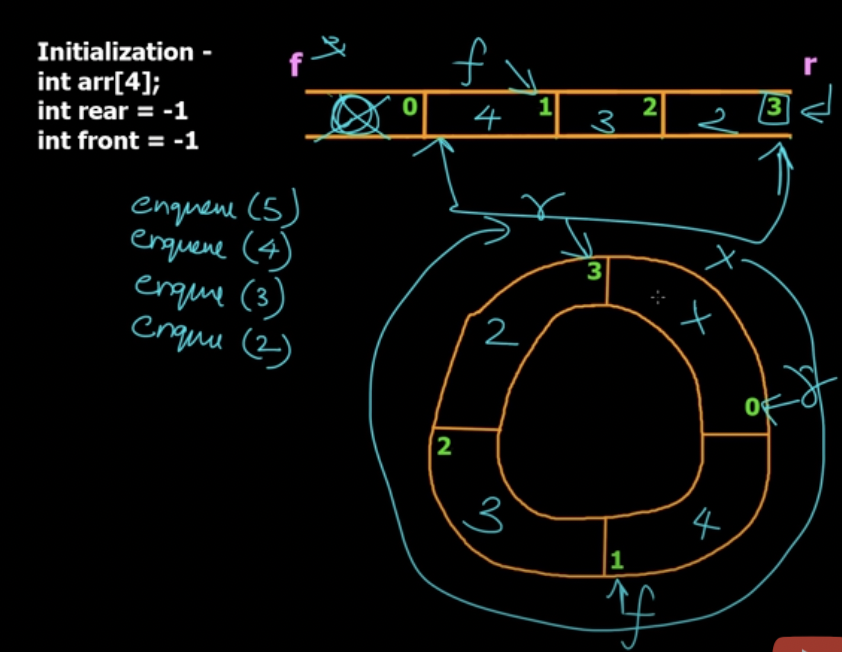 Initialization -
int arr[4];
int rear = -1
int front = -1
f
f
r
0 4 1 3 2 2 3
enqueue (5)
enqueue (4)
enqueue (3)
enqueue (2)
r
3
x
2
x
0
r
2
3
4
1
f